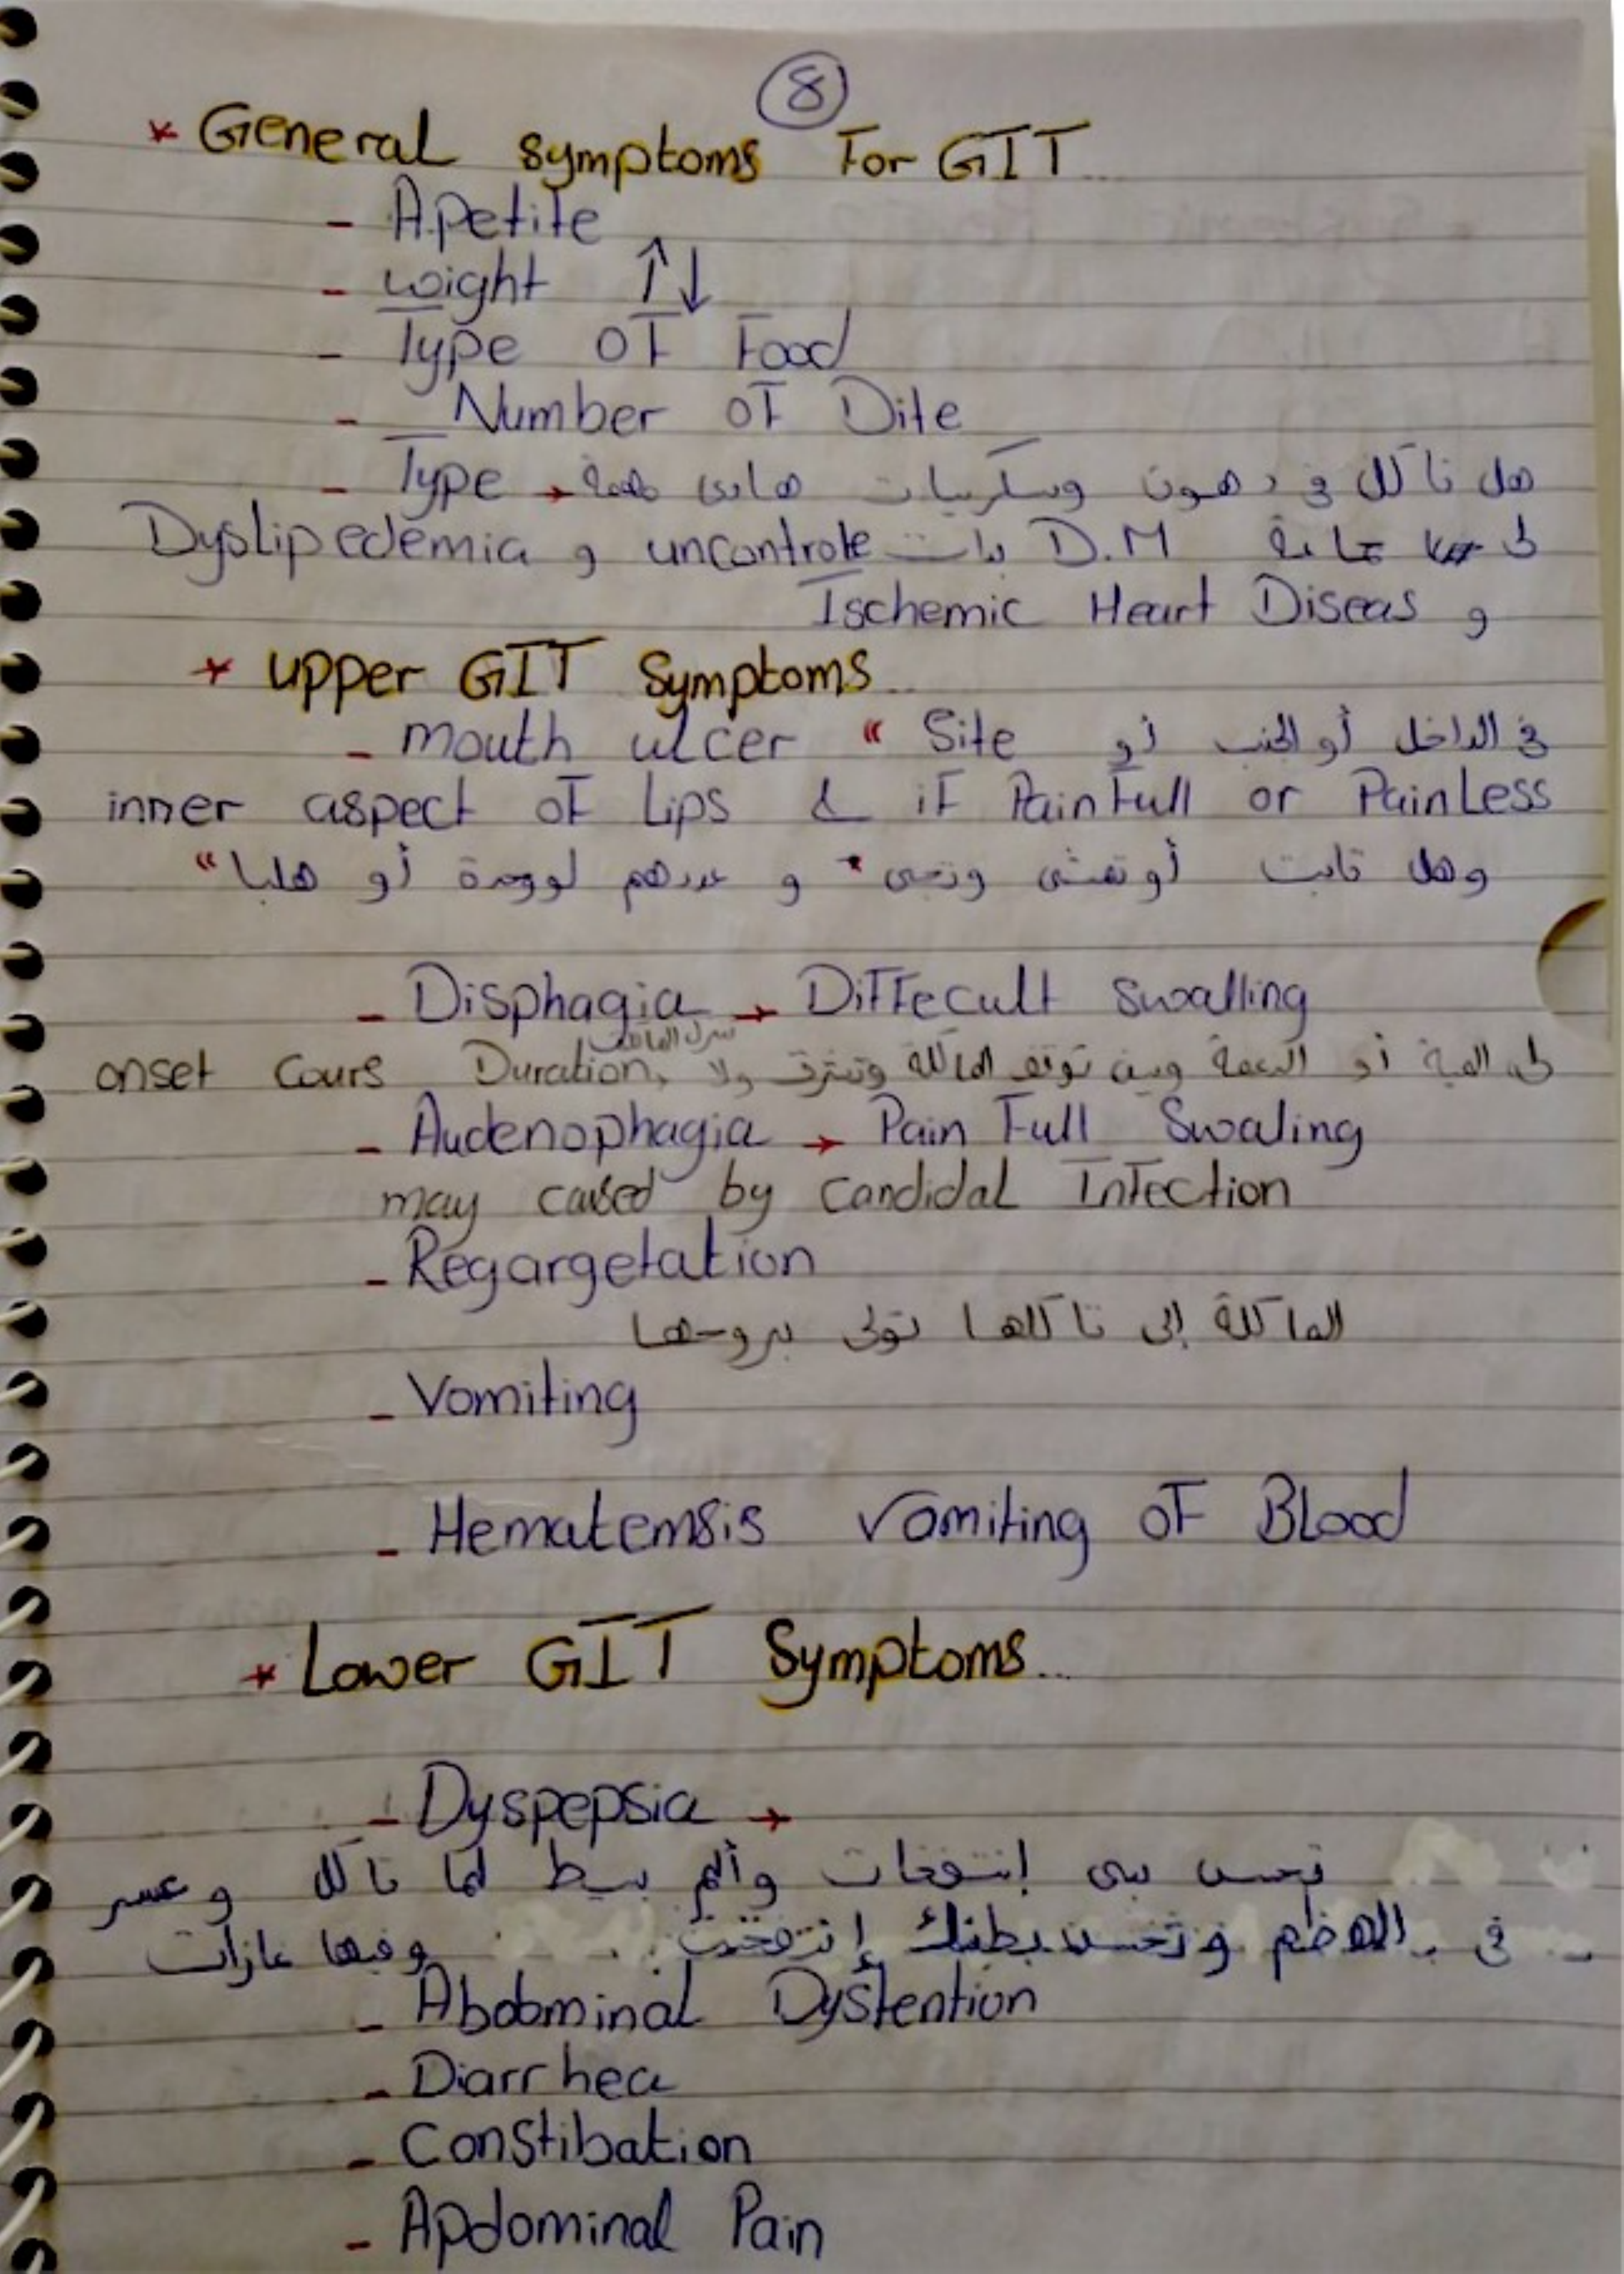 8
* General symptoms For GIT..
- Apetite
- weight ↑↓
- Type of Food
- Number of Dite
- Type → هل تاكل في دهون وسكريات هادي مهمة
لى جاية D.M بدات uncontrole و Dyslipedemia
و Ischemic Heart Diseas
* upper GIT Symptoms..
- mouth ulcer " Site في الداخل أو الجنب أو
inner aspect of Lips & if PainFull or PainLess
وهل ثابت أو تمشي وتجي و عددهم لووحدة أو هلبا "
- Disphagia → Diffecult swalling
onset Cours Duration, لى المية أو وين توقف الماكلة وتشرق ولا
- Audenophagia → Pain Full Swaling
may caused by candidal Infection
- Regargetation
الماكلة إلى تاكلها تولى بروحها
- Vomiting
- Hematemsis vomiting of Blood
* Lower GIT Symptoms..
- Dyspepsia →
تحس بى إنتفخات وألم بسيط لما تاكل و عسر
في الهضم وتحس بطنك إنتفخت .. وفيها غازات
- Abdominal Dystention
- Diarrhea
- Constibation
- Apdominal Pain